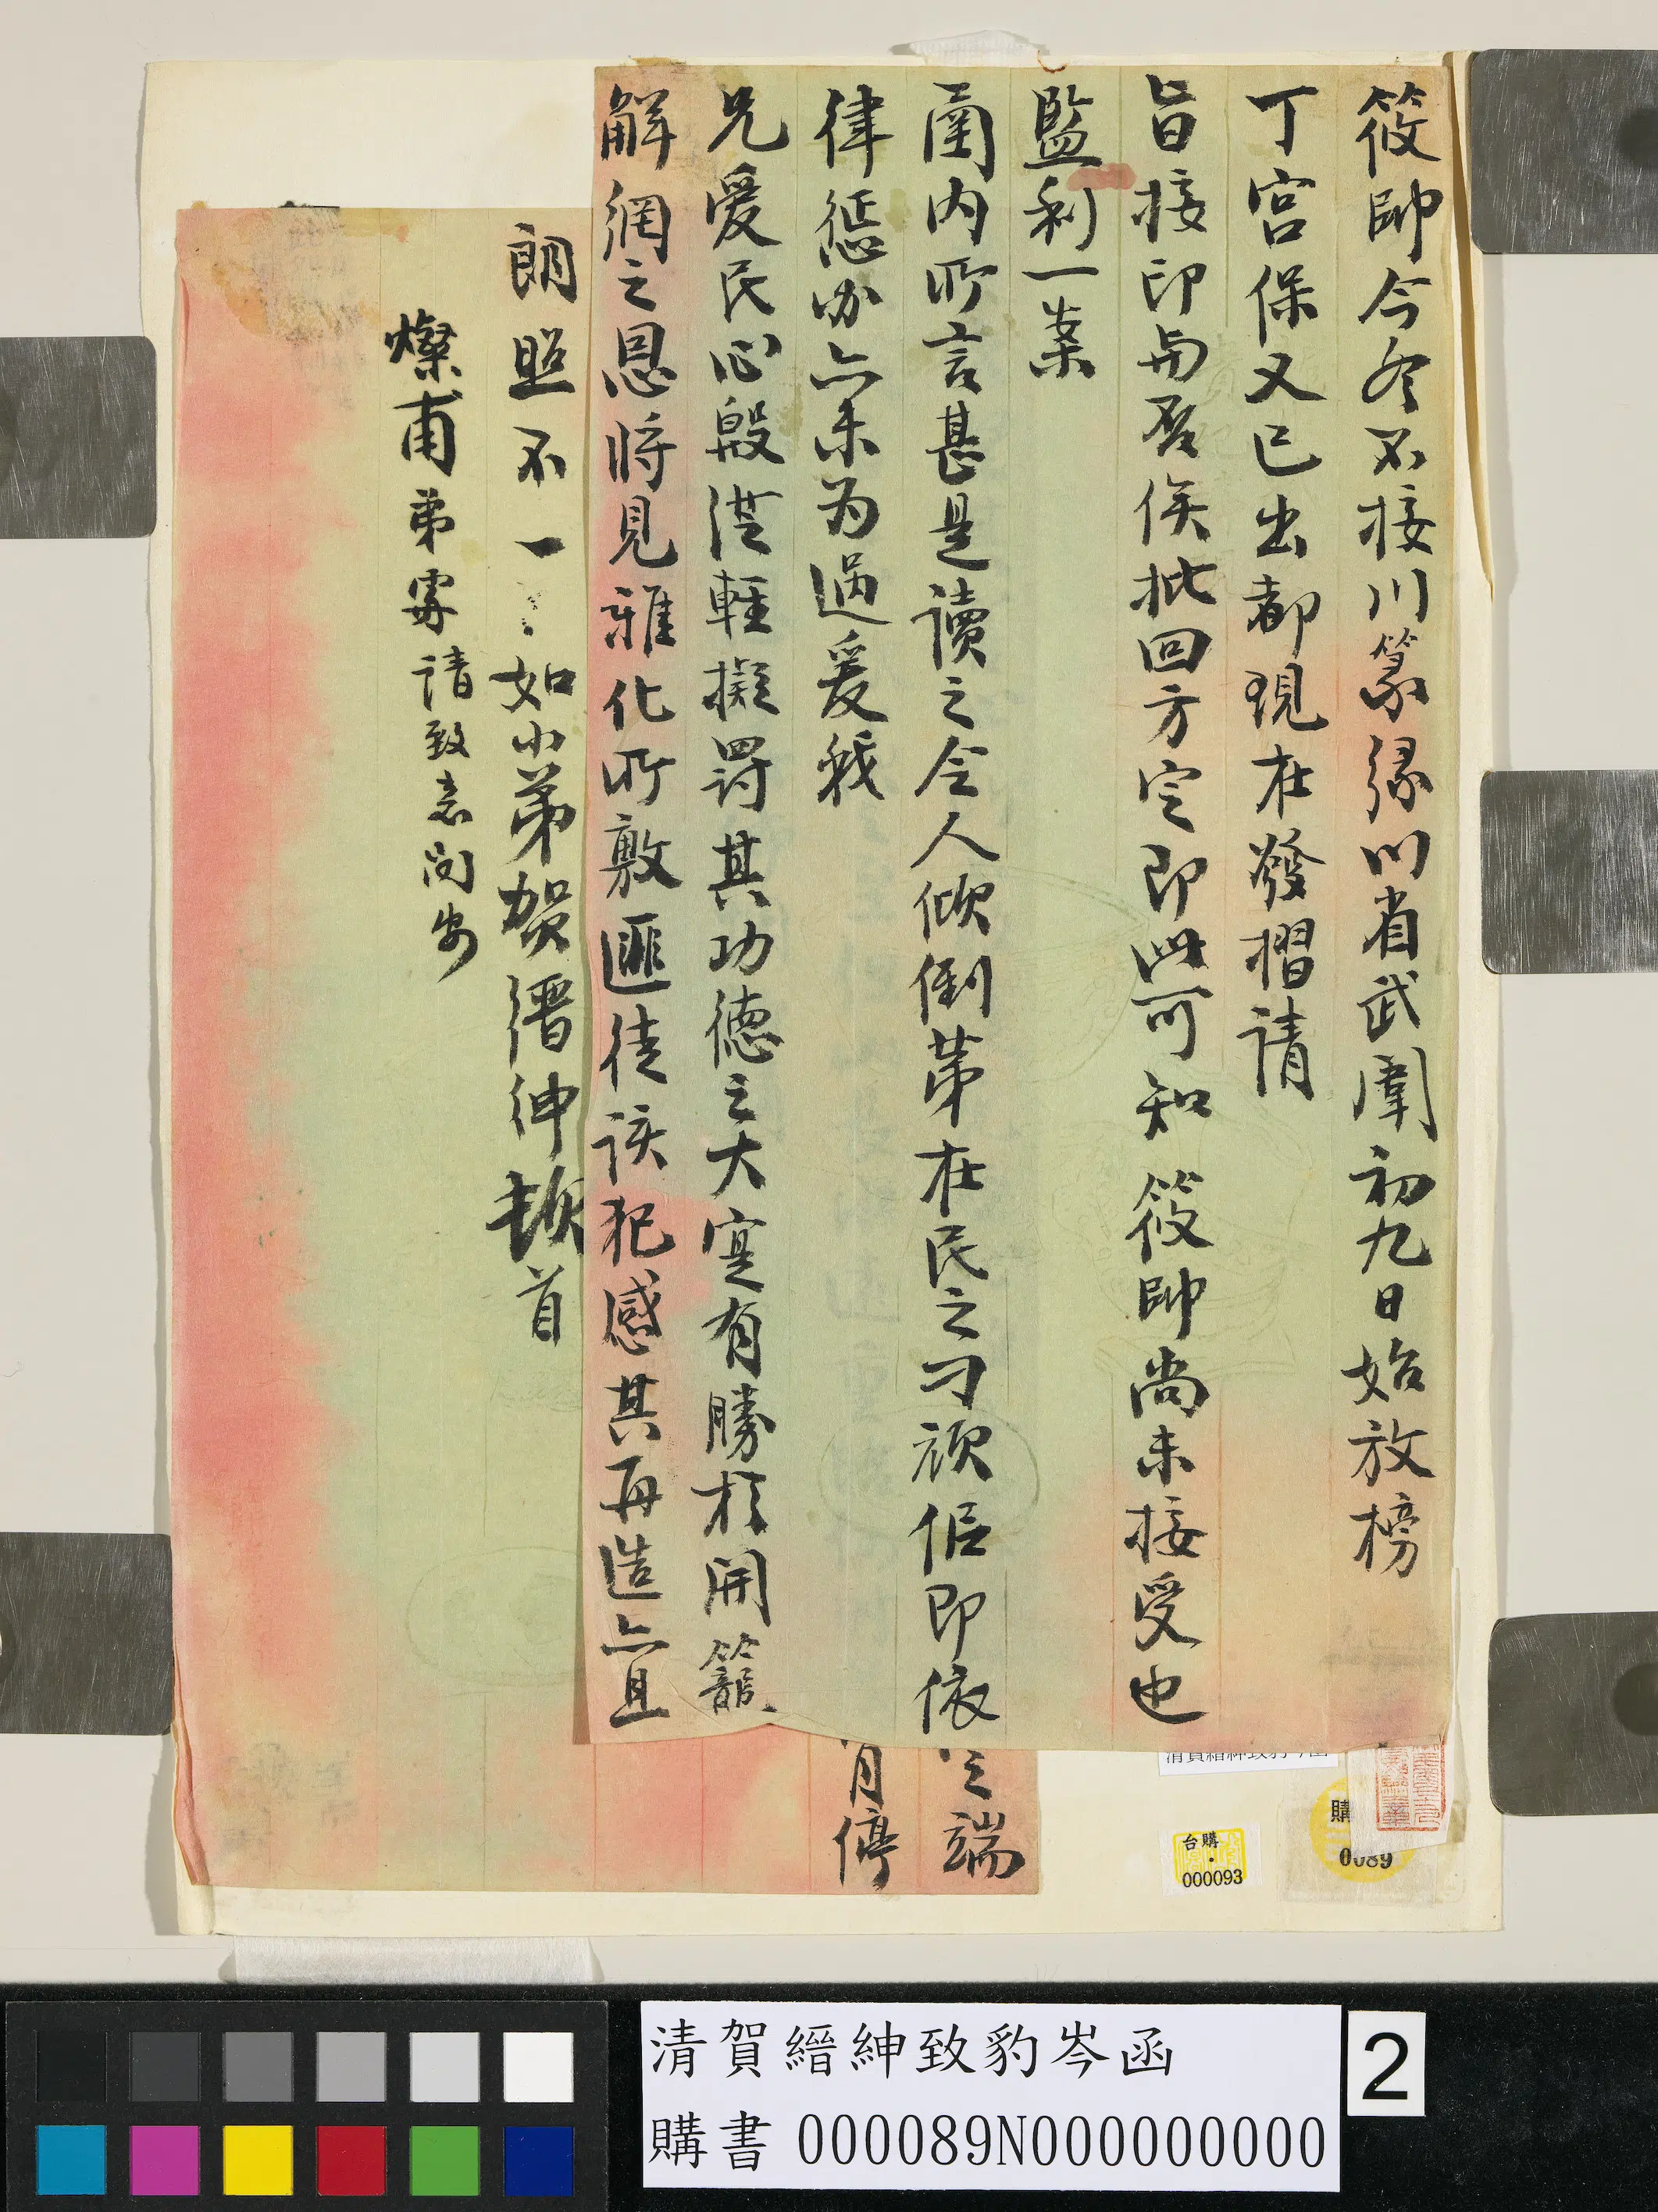 筱帥今冬不接川篆緣川省武闈初九日始放榜
丁宮保又已出都現在發摺請
旨接印與否俟批回方定即此可知筱帥尚未接受也
監利一案
閣內所言甚是讀之令人傾倒第在民之刁頑但即依
律懲办亦未为過爰我
兄愛民心殷從輕擬罰其功德之大寔有勝於開籠
解網之恩將見雅化所敷匪徒該犯感其再造亦且
端
肖停
朗照不一
如小弟賀縉紳頓首
燦甫弟寄請致意問安
清賀縉紳致豹岑函
購
0089
台購
000093
清賀縉紳致豹岑函
購書 000089N000000000
2